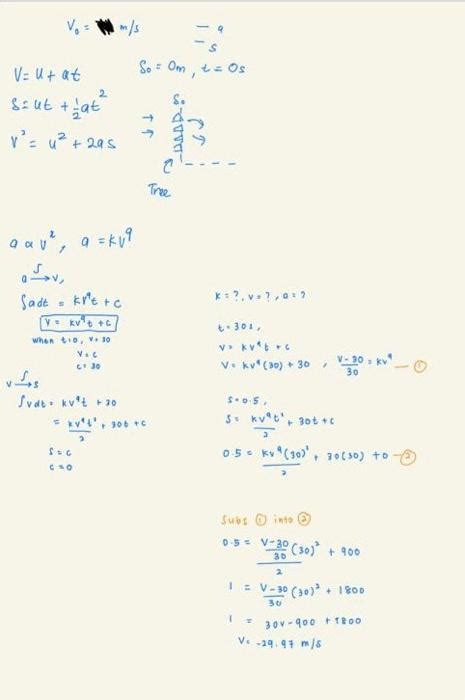 V₀ = m/s
– a
– s
V = u + at
S₀ = 0m, t = 0s
S = ut + ½at²
V² = u² + 2as
S₀
Tree
a α v², a = kv^q
a ∫→ v,
∫a dt = kv^q t + c
V = kv^q t + c
when t=0, v=30
V = c
c = 30
v ∫→ s
∫v dt = kv^q t + 30
= kv^q t²/2 + 30t + c
S = c
c = 0
k = ?, v = ?, a = ?
t = 30s,
V = kv^q t + c
V = kv^q (30) + 30 , V-30/30 = kv^q — ①
S = 0.5,
S = kv^q t²/2 + 30t + c
0.5 = kv^q (30)²/2 + 30(30) + 0 — ②
Subs ① into ②
0.5 = V-30/30 (30)²/2 + 900
1 = V-30/30 (30)² + 1800
1 = 30v - 900 + 1800
V = -29.97 m/s